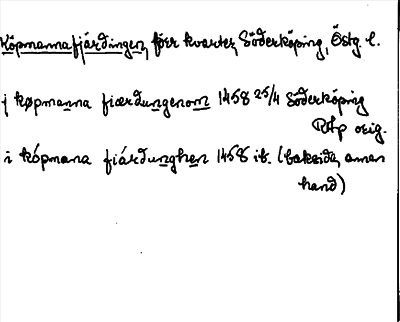 Köpmannafjärdingen, förr kvarter, Söderköping, Östg. l.
j køpmanna fiærdungenom 1458 25/4 Söderköping
RAp orig.
i köpmana fiárdunghen 1458 ib. (baksida, annan
hand)